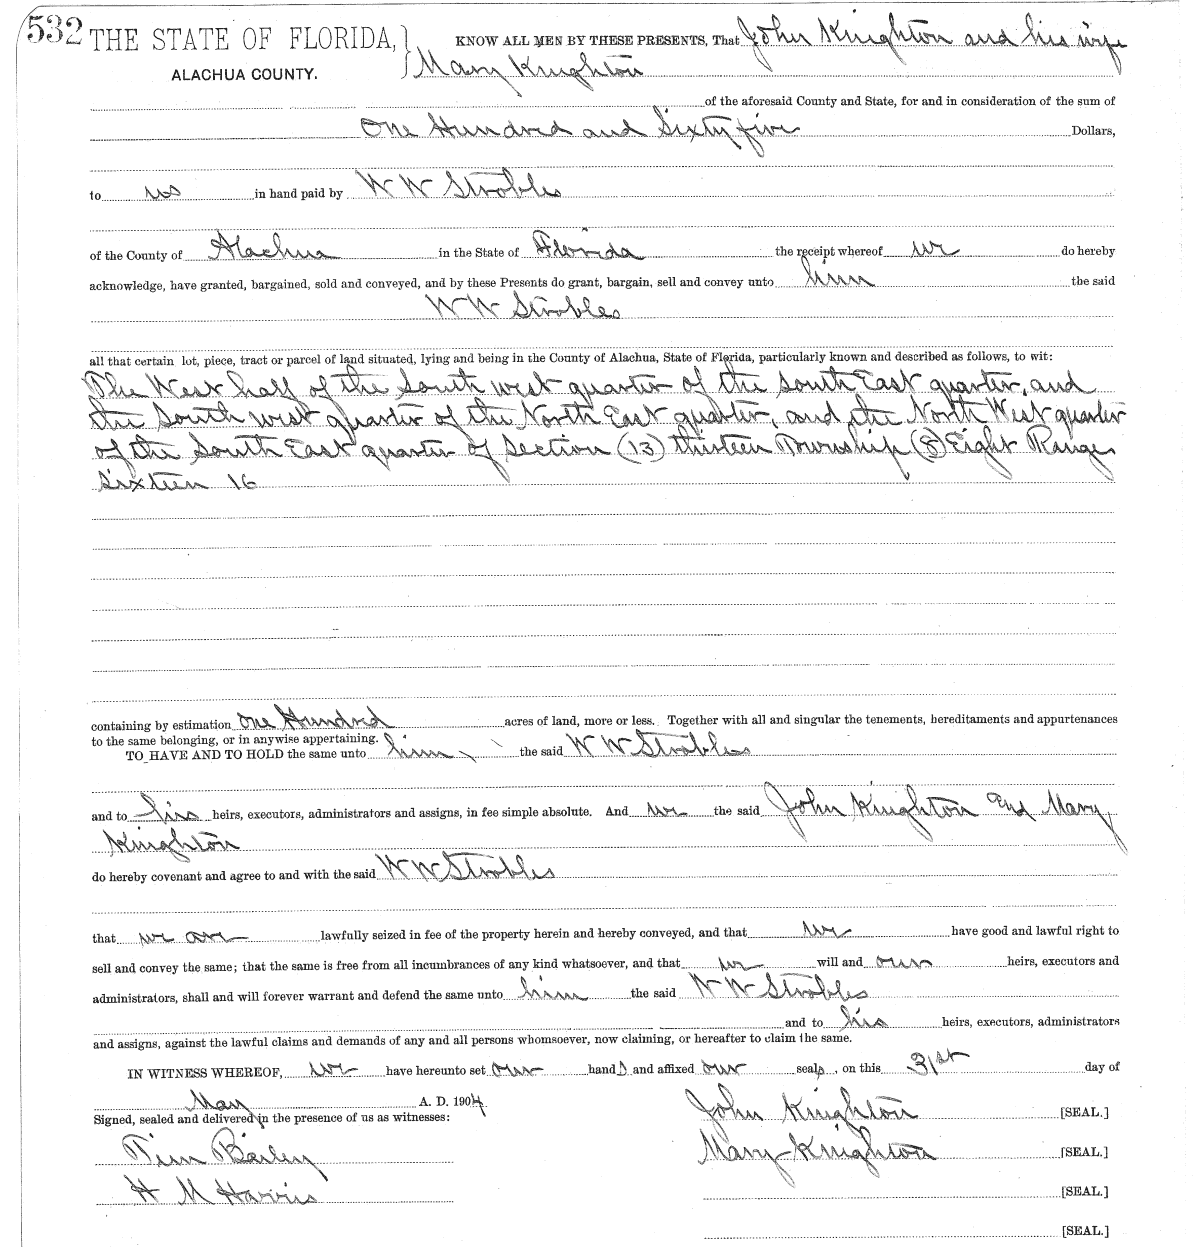 532 THE STATE OF FLORIDA, } KNOW ALL MEN BY THESE PRESENTS, That John Knighton and his wife
ALACHUA COUNTY. Mary Knighton
of the aforesaid County and State, for and in consideration of the sum of
One Hundred and Sixty five Dollars,
to us in hand paid by W W Strobles
of the County of Alachua in the State of Florida the receipt whereof we do hereby
acknowledge, have granted, bargained, sold and conveyed, and by these Presents do grant, bargain, sell and convey unto him the said
W W Strobles
all that certain lot, piece, tract or parcel of land situated, lying and being in the County of Alachua, State of Florida, particularly known and described as follows, to wit:
The West half of the South west quarter of the South East quarter, and
the South west quarter of the North East quarter, and the North West quarter
of the South East quarter of Section (13) thirteen Township (8) Eight Range
Sixteen 16
containing by estimation One Hundred acres of land, more or less. Together with all and singular the tenements, hereditaments and appurtenances
to the same belonging, or in anywise appertaining.
TO HAVE AND TO HOLD the same unto him the said W W Strobles
and to his heirs, executors, administrators and assigns, in fee simple absolute. And we the said John Knighton and Mary
Knighton
do hereby covenant and agree to and with the said W W Strobles
that we are lawfully seized in fee of the property herein and hereby conveyed, and that we have good and lawful right to
sell and convey the same; that the same is free from all incumbrances of any kind whatsoever, and that we will and our heirs, executors and
administrators, shall and will forever warrant and defend the same unto him the said W W Strobles
and to his heirs, executors, administrators
and assigns, against the lawful claims and demands of any and all persons whomsoever, now claiming, or hereafter to claim the same.
IN WITNESS WHEREOF, we have hereunto set our hands and affixed our seals, on this 31st day of
May A. D. 1904
Signed, sealed and delivered in the presence of us as witnesses: John Knighton [SEAL.]
Tim Bailey Mary Knighton [SEAL.]
H M Harris [SEAL.]
[SEAL.]